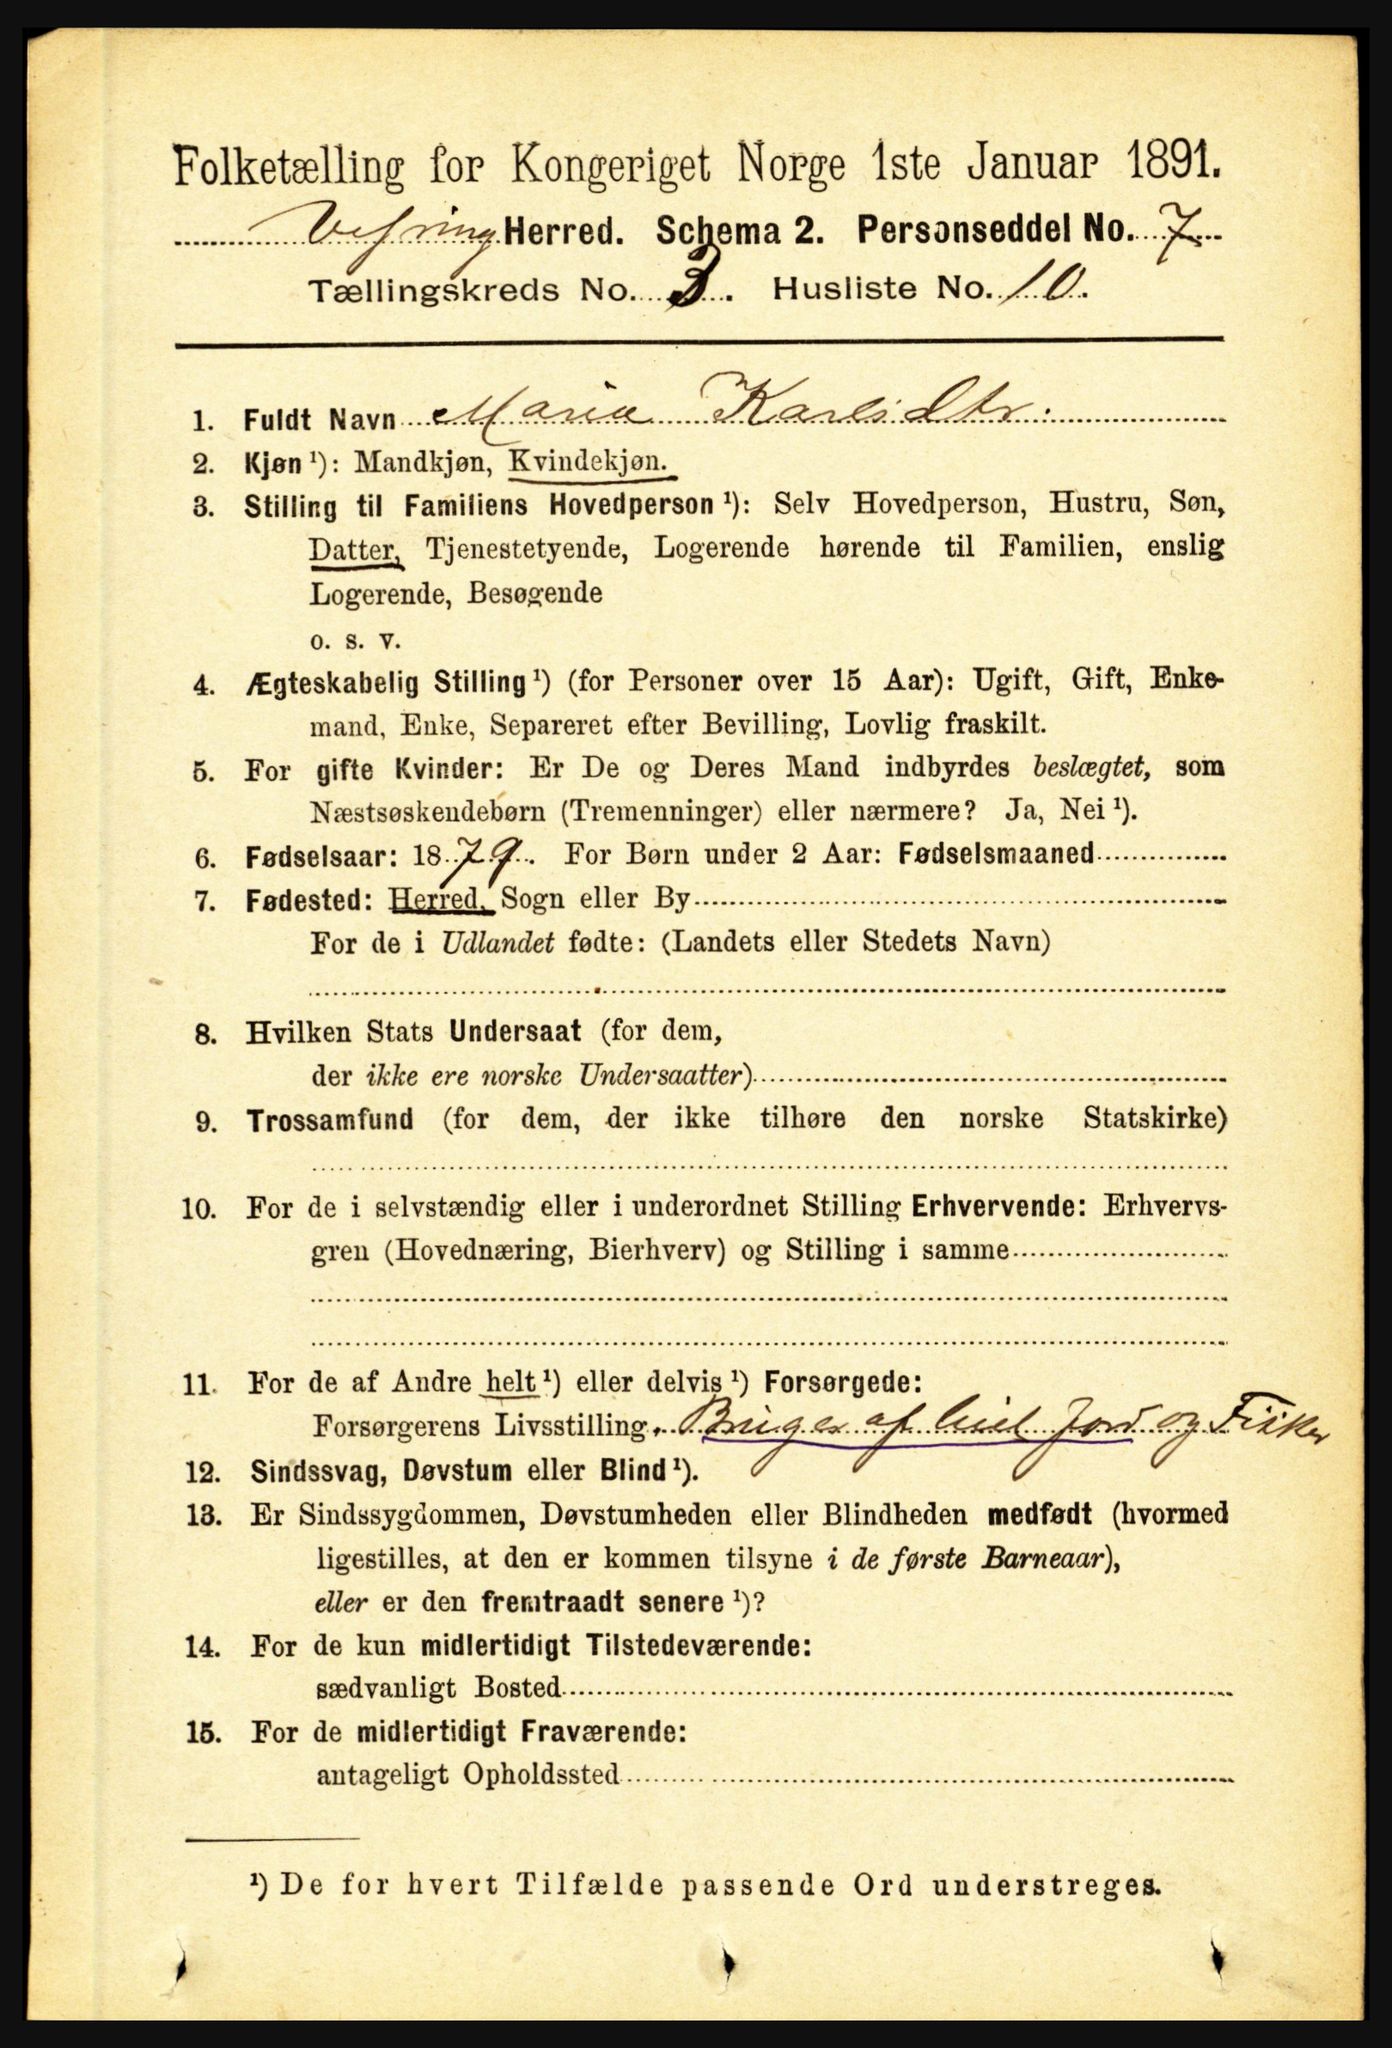 Folketælling for Kongeriget Norge 1ste Januar 1891.
Vefsring Herred. Schema 2. Personseddel No. 7
Tællingskreds No. 3. Husliste No. 10.
1. Fuldt Navn Maria Karlsdtr.
2. Kjøn ¹): Mandkjøn, Kvindekjøn.
3. Stilling til Familiens Hovedperson ¹): Selv Hovedperson, Hustru, Søn,
Datter, Tjenestetyende, Logerende hørende til Familien, enslig
Logerende, Besøgende
o. s. v.
4. Ægteskabelig Stilling ¹) (for Personer over 15 Aar): Ugift, Gift, Enke-
mand, Enke, Separeret efter Bevilling, Lovlig fraskilt.
5. For gifte Kvinder: Er De og Deres Mand indbyrdes beslægtet, som
Næstsøskendebørn (Tremenninger) eller nærmere? Ja, Nei ¹).
6. Fødselsaar: 1879. For Børn under 2 Aar: Fødselsmaaned
7. Fødested: Herred, Sogn eller By
For de i Udlandet fødte: (Landets eller Stedets Navn)
8. Hvilken Stats Undersaat (for dem,
der ikke ere norske Undersaatter)
9. Trossamfund (for dem, der ikke tilhøre den norske Statskirke)
10. For de i selvstændig eller i underordnet Stilling Erhvervende: Erhvervs-
gren (Hovednæring, Bierhverv) og Stilling i samme
11. For de af Andre helt ¹) eller delvis ¹) Forsørgede:
Forsørgerens Livsstilling. Bruger af leiet Jord og Fisker
12. Sindssvag, Døvstum eller Blind ¹).
13. Er Sindssygdommen, Døvstumheden eller Blindheden medfødt (hvormed
ligestilles, at den er kommen tilsyne i de første Barneaar),
eller er den fremtraadt senere ¹)?
14. For de kun midlertidigt Tilstedeværende:
sædvanligt Bosted
15. For de midlertidigt Fraværende:
antageligt Opholdssted
¹) De for hvert Tilfælde passende Ord understreges.